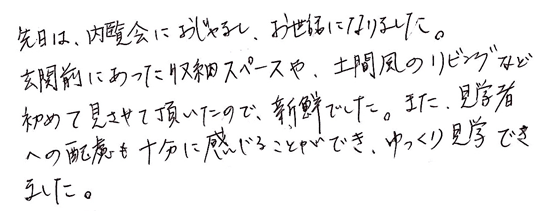 先日は、内覧会におじゃまし、お世話になりました。
玄関前にあった収納スペースや、土間風のリビングなど
初めて見させて頂いたので、新鮮でした。また、見学者
への配慮も十分に感じることができ、ゆっくり見学でき
ました。